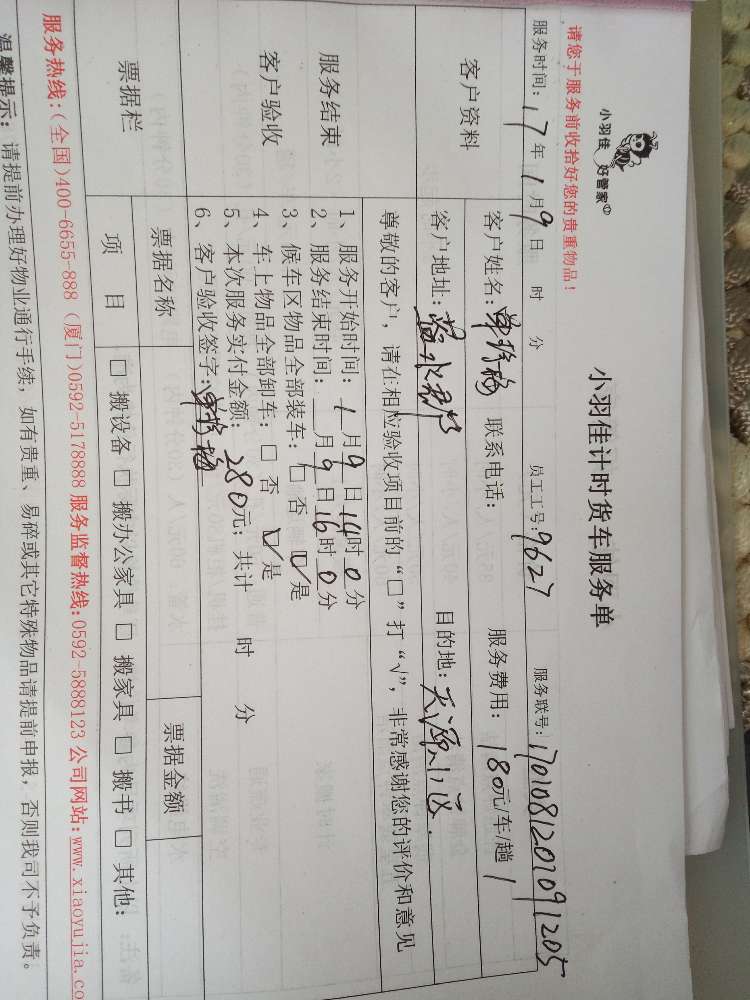 小羽佳 好管家
小羽佳计时货车服务单
请您于服务前收拾好您的贵重物品！
服务时间：17年1月9日 时 分 员工工号：9627 服务联号：170108120109 1205
客户资料
客户姓名： 联系电话： 服务费用：180元/车/趟
客户地址： 目的地：天源小区.
尊敬的客户，请在相应验收项目前的“□”打“√”，非常感谢您的评价和意见
服务结束
客户验收
1、服务开始时间：1月9日14时0分
2、服务结束时间：__月9日16时0分
3、候车区物品全部装车：□否 ☑是
4、车上物品全部卸车：□否 ☑是
5、本次服务实付金额：280元；共计 时 分
6、客户验收签字：
票据栏
票据名称 票据金额
项 目 □ 搬设备 □ 搬办公家具 □ 搬家具 □ 搬书 □ 其他：
服务热线：(全国)400-6655-888 (厦门)0592-5178888 服务监督热线：0592-5888123 公司网站：www.xiaoyujia.co
温馨提示：请提前办理好物业通行手续，如有贵重、易碎或其它特殊物品请提前申报，否则我司不予负责。